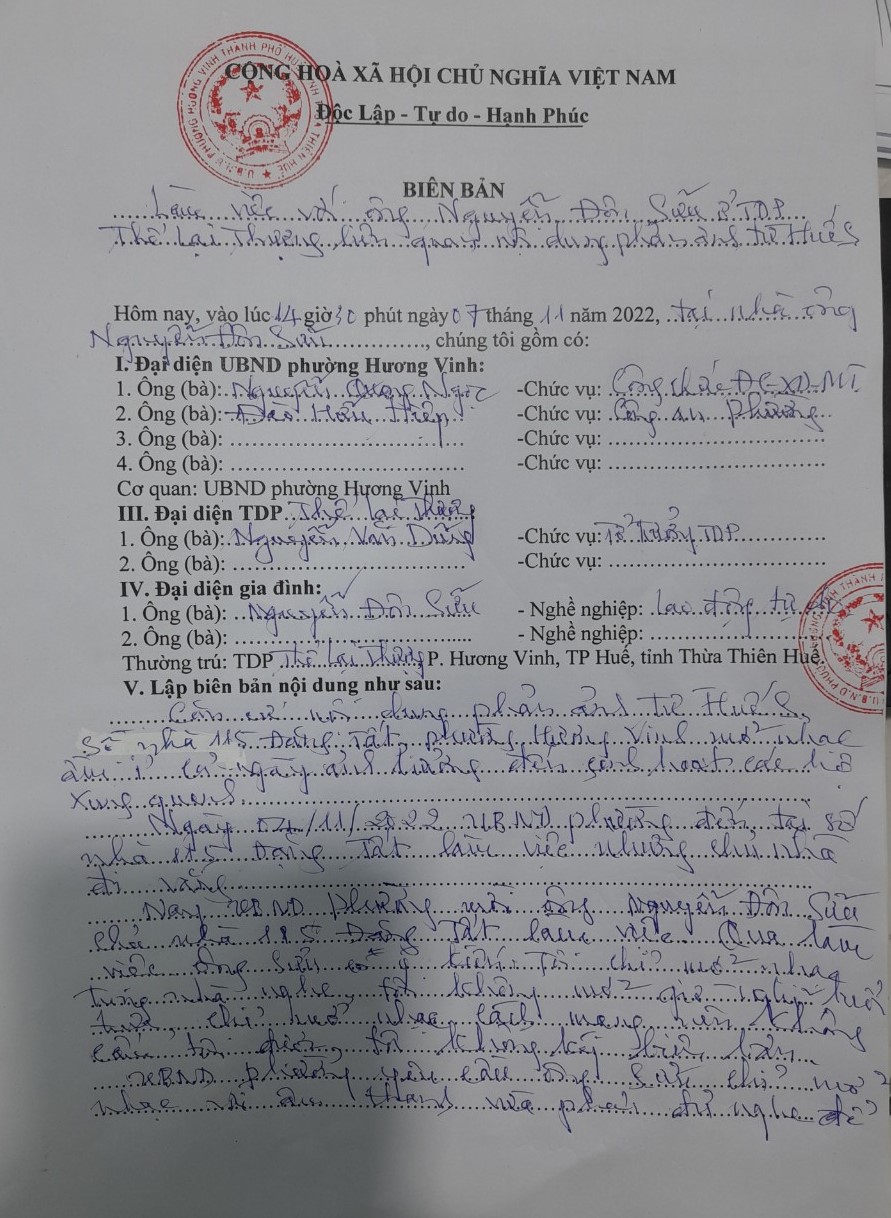 CỘNG HOÀ XÃ HỘI CHỦ NGHĨA VIỆT NAM
Độc Lập - Tự do - Hạnh Phúc
BIÊN BẢN
Làm việc với ông Nguyễn Đôn Sửu ở TDP
Thế Lại Thượng liên quan nội dung phản ánh từ HuếS
Hôm nay, vào lúc 14 giờ 30 phút ngày 07 tháng 11 năm 2022, tại nhà ông
Nguyễn Đôn Sửu, chúng tôi gồm có:
I. Đại diện UBND phường Hương Vinh:
1. Ông (bà): Nguyễn Quang Ngọc -Chức vụ: Công chức ĐC-XD-MT
2. Ông (bà): Đào Hữu Hiệp -Chức vụ: Công an phường
3. Ông (bà): -Chức vụ:
4. Ông (bà): -Chức vụ:
Cơ quan: UBND phường Hương Vinh
III. Đại diện TDP Thế Lại Thượng
1. Ông (bà): Nguyễn Văn Dũng -Chức vụ: Tổ trưởng TDP
2. Ông (bà): -Chức vụ:
IV. Đại diện gia đình:
1. Ông (bà): Nguyễn Đôn Sửu - Nghề nghiệp: lao động tự do
2. Ông (bà): - Nghề nghiệp:
Thường trú: TDP Thế Lại Thượng P. Hương Vinh, TP Huế, tỉnh Thừa Thiên Huế.
V. Lập biên bản nội dung như sau:
Căn cứ nội dung phản ánh từ HuếS,
Số nhà 115 Đặng Tất, phường Hương Vinh mở nhạc
ầm ĩ cả ngày ảnh hưởng đến sinh hoạt các hộ
xung quanh.
Ngày 04/11/2022 UBND phường đến tại số
nhà 115 Đặng Tất làm việc nhưng chủ nhà
đi vắng.
Nay UBND phường mời ông Nguyễn Đôn Sửu
chủ nhà 115 Đặng Tất làm việc. Qua làm
việc ông Sửu có ý kiến: Tôi chỉ mở nhạc
trong nhà nghe, tôi không mở giờ nghỉ trưa
chỉ mở nhạc cách mạng nên không
tôi không ký biên bản.
UBND phường yêu cầu ông Sửu chỉ mở
nhạc với âm thanh vừa phải đủ nghe để